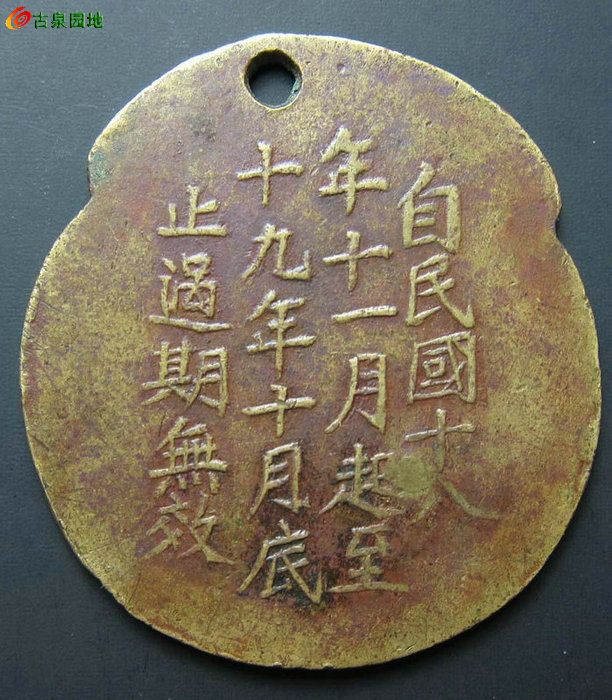 古泉园地
自民國十八
年十一月起至
十九年十月底
止過期無效